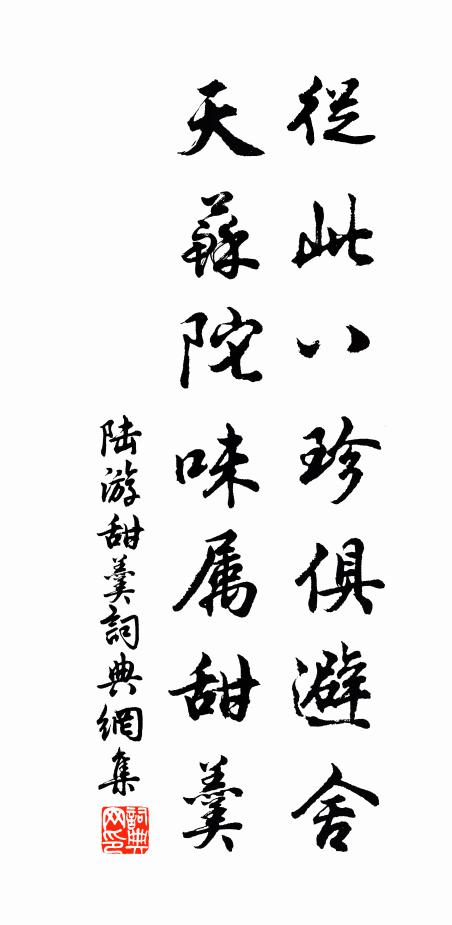 從此八珍俱避舍
天蘇陀味属甜羹
陆游甜羹詞典網集
詞典网印